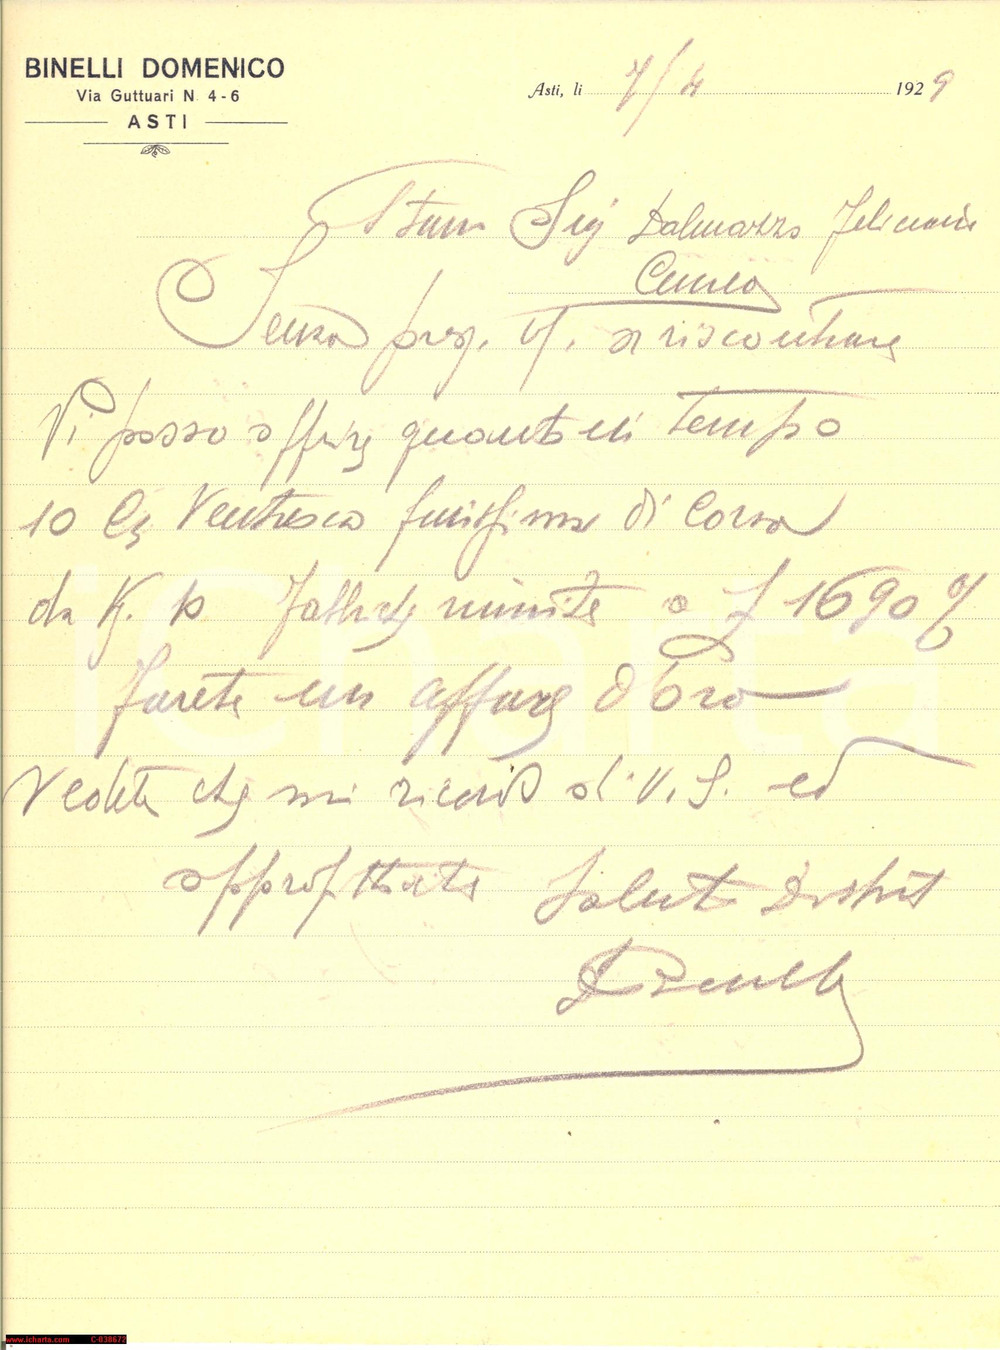 BINELLI DOMENICO
Via Guttuari N. 4-6
ASTI
Asti, li 7/4 1929
Sig Dalmazzo
Cuneo
Senza preg. V. a riscontrare
Vi posso offrire quanto in tempo
10 Cs Ventresca finissima di Corsa
da K. 10 a £ 1690 %
Farete un affare d'oro
Vedete che mi ricordo di V. S. ed
approfittate Saluti Distinti
DBinelli
iCharta
www.icharta.com C-038672